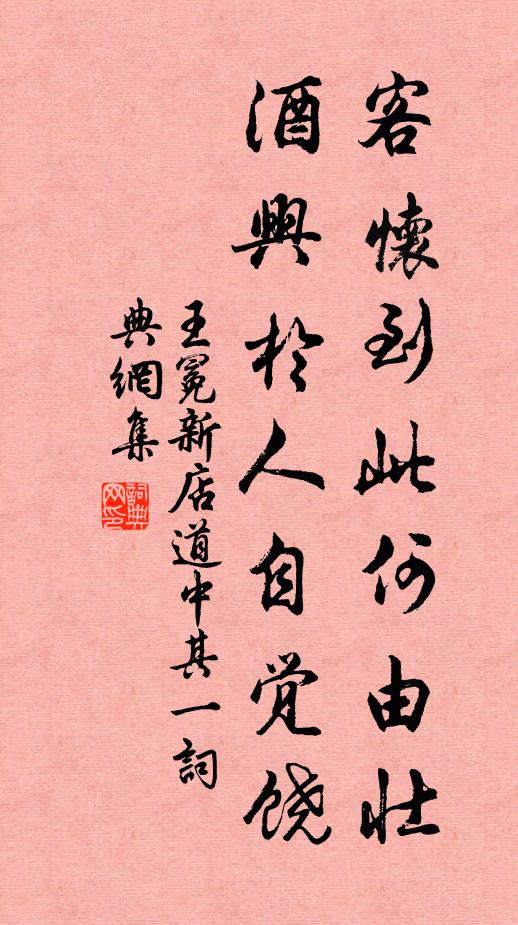 客懷到此何由壯
酒興於人自覚饶
王冕新店道中其一詞
典網集
詞典网印